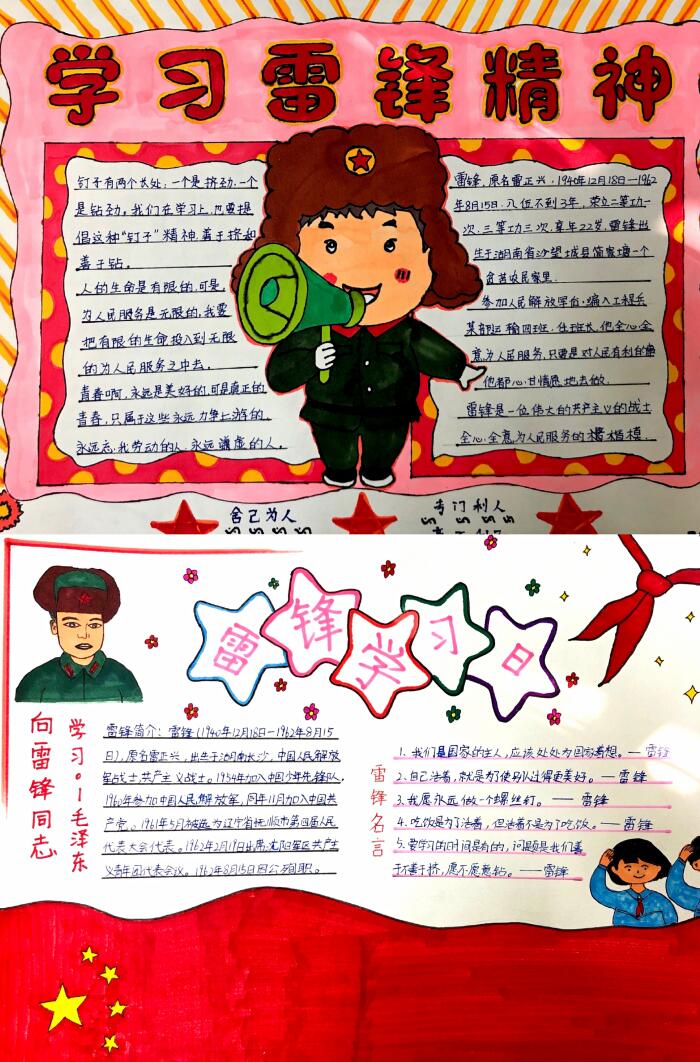 学习雷锋精神
钉子有两个长处:一个是挤劲,一个
是钻劲。我们在学习上,也要提
倡这种“钉子”精神,善于挤和
善于钻。
人的生命是有限的,可是,
为人民服务是无限的,我要
把有限的生命投入到无限
的为人民服务之中去。
青春啊,永远是美好的,可是真正的
青春,只属于这些永远力争上游的,
永远忘我劳动的人,永远谦虚的人。
雷锋,原名雷正兴,1940年12月18日—1962
年8月15日,入伍不到3年,荣立二等功一
次,三等功三次,享年22岁,雷锋出
生于湖南省沙望城县简家塘一个
贫苦农民家里。
参加人民解放军后,编入工程兵
某部班 四班,任班长,他全心全
意为人民服务,只要是对人民有利的
他都心甘情愿地去做。
雷锋是一位伟大的共产主义的战士
全心全意为人民服务的楷模.
舍己为人
专门利人
雷锋学习日
向雷锋同志
学习。—毛泽东
雷锋简介:雷锋(1940年12月18日—1962年8月15
日),原名雷正兴,出生于湖南长沙,中国人民解放
军战士,共产主义战士。1954年加入中国少年先锋队,
1960年参加中国人民解放军,同年11月加入中国共
产党。1961年5月被选为辽宁省抚顺市第四届人民
代表大会代表。1962年2月19日出席沈阳军区共产主
义青年团代表会议。1962年8月15日因公殉职。
雷锋名言
1、我们是国家的主人,应该处处为国家着想。—雷锋
2、自己活着,就是为了使别人过得更美好。—雷锋
3、我愿永远做一个螺丝钉。—雷锋
4、吃饭是为了活着,但活着不是为了吃饭。—雷锋
5、要学习的时间是有的,问题是我们善
于不善于挤,愿不愿意钻。—雷锋